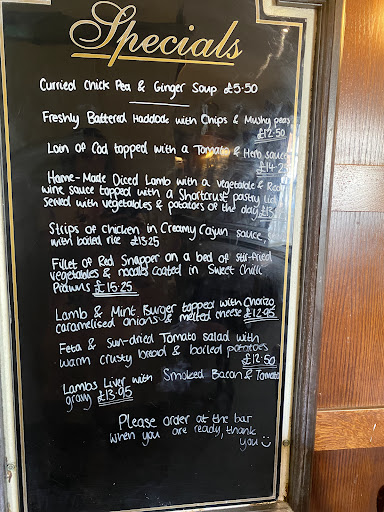 Specials
Curried Chick Pea & Ginger Soup £5.50
Freshly Battered Haddock with Chips & Mushy peas
£12.50
Loin of Cod topped with a Tomato & Herb sauce
£14.25
Home-Made Diced Lamb with a vegetable & Rose
wine sauce topped with a Shortcrust pastry lid
served with vegetables & potatoes of the day £13.
Strips of chicken in Creamy Cajun sauce,
with boiled rice £13.25
Fillet of Red Snapper on a bed of stir-fried
vegetables & noodles coated in Sweet Chilli
Prawns £15.25
Lamb & Mint Burger topped with Chorizo,
caramelised onions & melted cheese £12.95
Feta & Sun-dried Tomato salad with
warm crusty bread & boiled potatoes
£12.50
Lambs Liver with Smoked Bacon & Tomato
gravy £13.95
Please order at the bar
when you are ready, thank
you